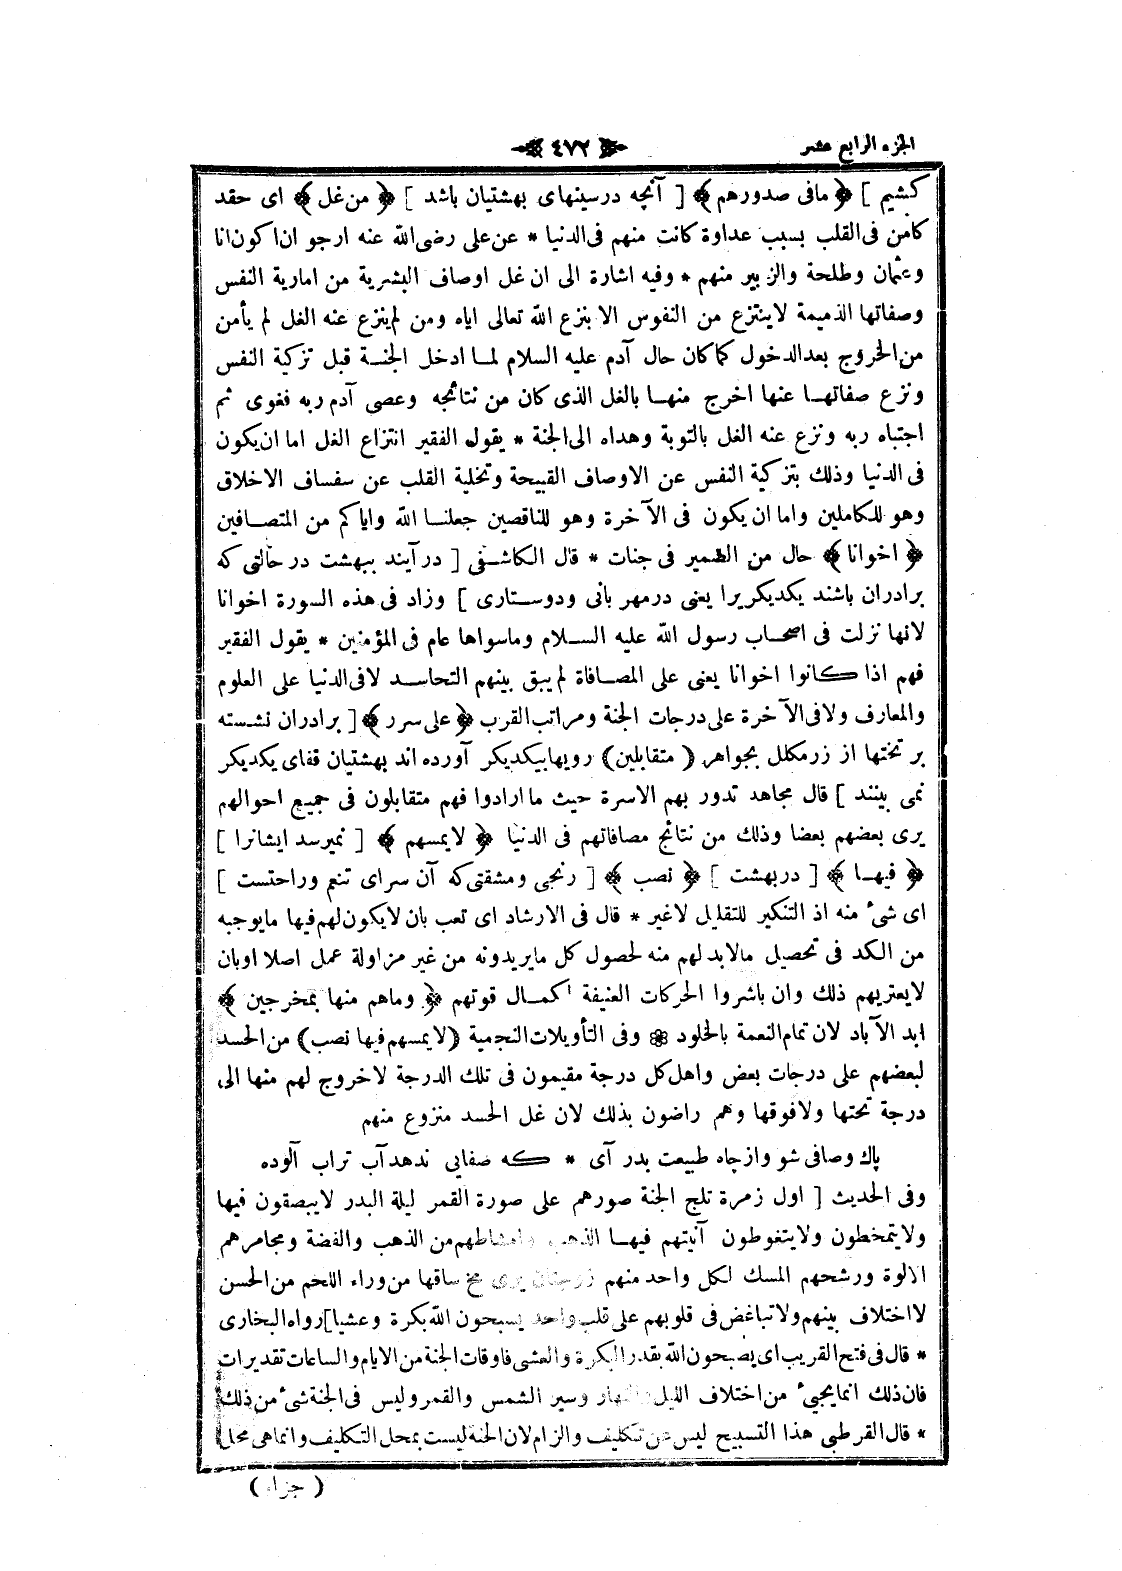 الجزء الرابع عشر
﴿ ٤٧٢ ﴾
كشيم ] ﴿ مافى صدورهم ﴾ [ آنچه درسينهاى بهشتيان باشد ] ﴿ من غل ﴾ اى حقد
كامن فى القلب بسبب عداوة كانت منهم فى الدنيا * عن على رضى الله عنه ارجو ان اكون انا
وعثمان وطلحة والزبير منهم * وفيه اشارة الى ان غل اوصاف البشرية من امارية النفس
وصفاتها الذميمة لاينتزع من النفوس الا بنزع الله تعالى اياه ومن لم ينزع عنه الغل لم يأمن
من الخروج بعد الدخول كما كان حال آدم عليه السلام لما ادخل الجنة قبل تزكية النفس
ونزع صفاتها عنها اخرج منها بالغل الذى كان من نتائجه وعصى آدم ربه فغوى ثم
اجتباه ربه ونزع عنه الغل بالتوبة وهداه الى الجنة * يقول الفقير انتزاع الغل اما ان يكون
فى الدنيا وذلك بتزكية النفس عن الاوصاف القبيحة وتخلية القلب عن سفساف الاخلاق
وهو للكاملين واما ان يكون فى الآخرة وهو للناقصين جعلنا الله واياكم من المتصافين
﴿ اخوانا ﴾ حال من الضمير فى جنات * قال الكاشفى [ درآيند ببهشت در حالتى كه
برادران باشند يكديكريرا يعنى درمهربانى ودوستارى ] وزاد فى هذه السورة اخوانا
لانها نزلت فى اصحاب رسول الله عليه السلام وماسواها عام فى المؤمنين * يقول الفقير
فهم اذا كانوا اخوانا يعنى على المصافاة لم يبق بينهم التحاسد لا فى الدنيا على العلوم
والمعارف ولا فى الآخرة على درجات الجنة ومراتب القرب ﴿ على سرر ﴾ [ برادران نشسته
بر تختها از زرمكلل بجواهر ( متقابلين ) رويهابيكديكر آورده اند بهشتيان قفاى يكديكر
نمى بينند ] قال مجاهد تدور بهم الاسرة حيث ما ارادوا فهم متقابلون فى جميع احوالهم
يرى بعضهم بعضا وذلك من نتائج مصافاتهم فى الدنيا ﴿ لايمسهم ﴾ [ نميرسد ايشانرا ]
﴿ فيها ﴾ [ دربهشت ] ﴿ نصب ﴾ [ رنجى ومشقتى كه آن سراى تنعم وراحتست ]
اى شئ منه اذ التنكير للتقليل لا غير * قال فى الارشاد اى تعب بان لايكون لهم فيها مايوجبه
من الكد فى تحصيل مالابد لهم منه لحصول كل مايريدونه من غير مزاولة عمل اصلا اوبان
لايعتريهم ذلك وان باشروا الحركات العنيفة لكمال قوتهم ﴿ وماهم منها بمخرجين ﴾
ابد الآباد لان تمام النعمة بالخلود ❀ وفى التأويلات النجمية ( لايمسهم فيها نصب ) من الحسد
لبعضهم على درجات بعض واهل كل درجة مقيمون فى تلك الدرجة لاخروج لهم منها الى
درجة تحتها ولافوقها وهم راضون بذلك لان غل الحسد منزوع منهم
پاك وصافى شو وازجاه طبيعت بدر آى * كه صفايى ندهد آب تراب آلوده
وفى الحديث [ اول زمرة تلج الجنة صورهم على صورة القمر ليلة البدر لايبصقون فيها
ولايتمخطون ولايتغوطون آنيتهم فيها الذهب وامشاطهم من الذهب والفضة ومجامرهم
الالوة ورشحهم المسك لكل واحد منهم زوجتان يرى مخ ساقها من وراء اللحم من الحسن
لااختلاف بينهم ولاتباغض فى قلوبهم على قلب واحد يسبحون الله بكرة وعشيا] رواه البخارى
* قال فى فتح القريب اى يصبحون الله بقدر البكرة والعشى فاوقات الجنة من الايام والساعات تقديرات
فان ذلك انمايجئ من اختلاف الليل والنهار وسير الشمس والقمر وليس فى الجنة شئ من ذلك
* قال القرطبى هذا التسبيح ليس عن تكليف والزام لان الجنة ليست بمحل التكليف وانماهى محل
( جزاء )